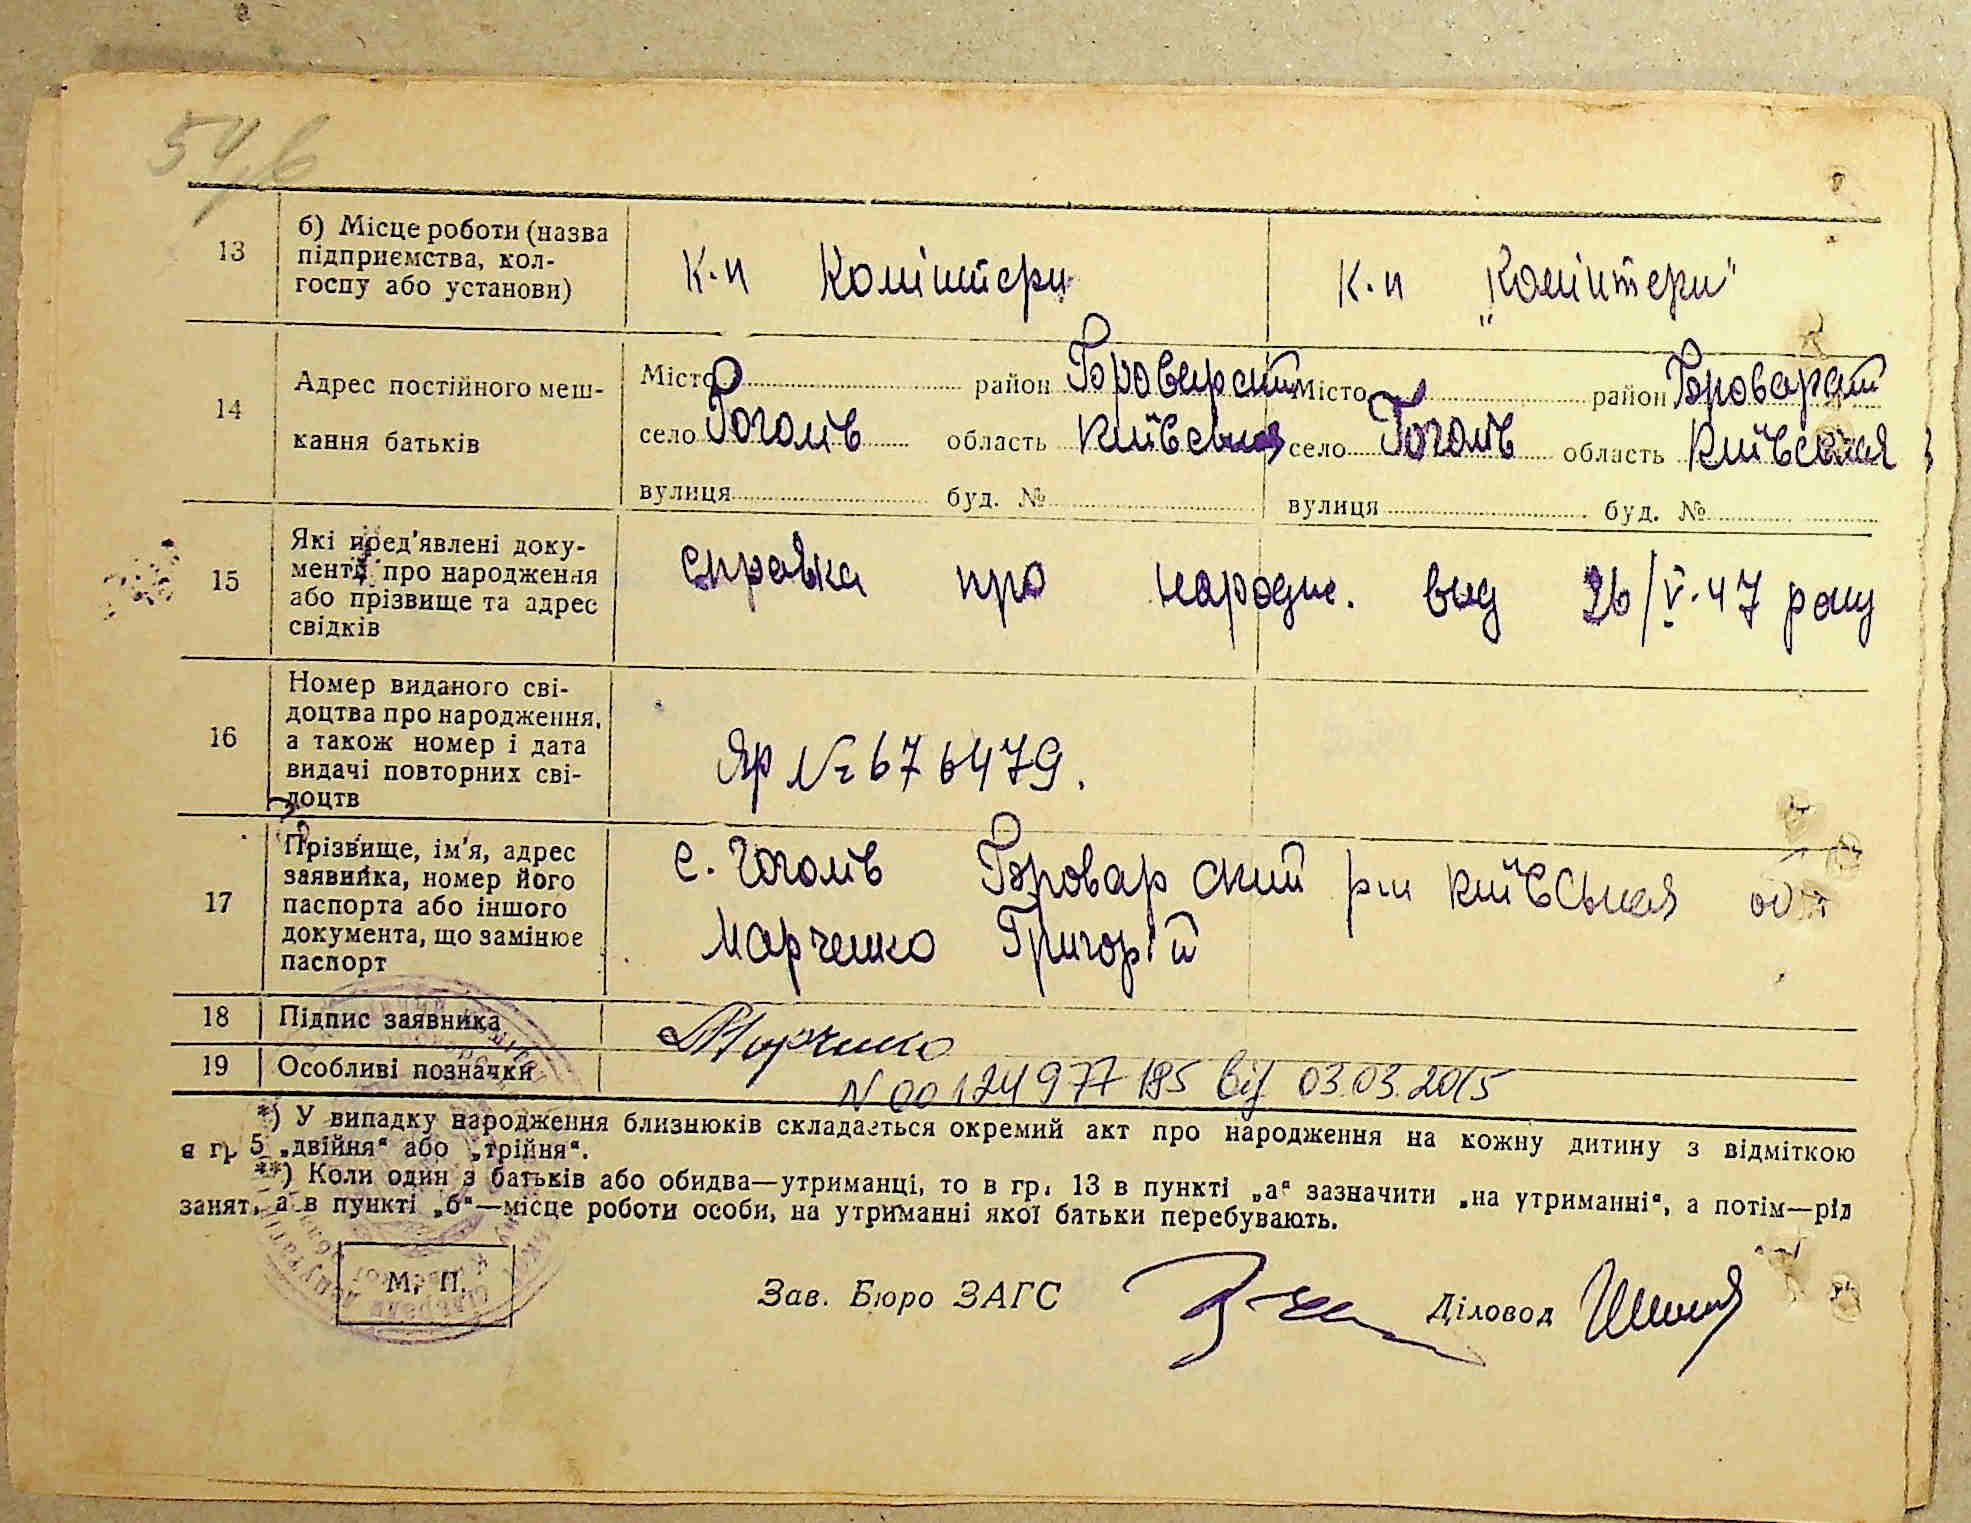 54
13
б) Місце роботи (назва
підприємства, кол-
госпу або установи)
к-п Комінтерн
к-п "Комінтерн"
14
Адрес постійного меш-
кання батьків
Місто район Броварский
село Гоголів область Київська
вулиця буд. №
Місто район Броварский
село Гоголів область Київская
вулиця буд. №
15
Які пред'явлені доку-
менти про народження
або прізвище та адрес
свідків
справка про народж. вид 26/V-47 року
16
Номер виданого сві-
доцтва про народження,
а також номер і дата
видачі повторних сві-
доцтв
ЯР № 676479.
17
Прізвище, ім'я, адрес
заявника, номер його
паспорта або іншого
документа, що замінює
паспорт
с. Гоголів Броварский р-н Київськая
Марченко Григорій
18
Підпис заявника
Марченко
19
Особливі позначки
N 00124977185 від 03.03.2015
*) У випадку народження близнюків складається окремий акт про народження на кожну дитину з відміткою
в гр. 5 „двійня“ або „трійня“.
**) Коли один з батьків або обидва—утриманці, то в гр. 13 в пункті „а“ зазначити „на утриманні“, а потім—рід
занят, а в пункті „б“—місце роботи особи, на утриманні якої батьки перебувають.
М. П.
Зав. Бюро ЗАГС
Діловод